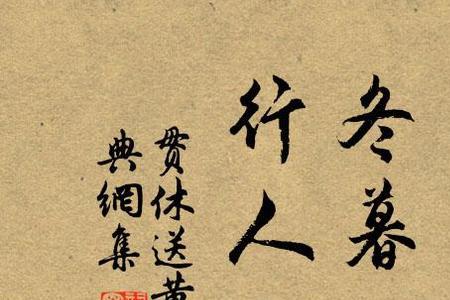 冬暮
行人
貫休送黃
典網集